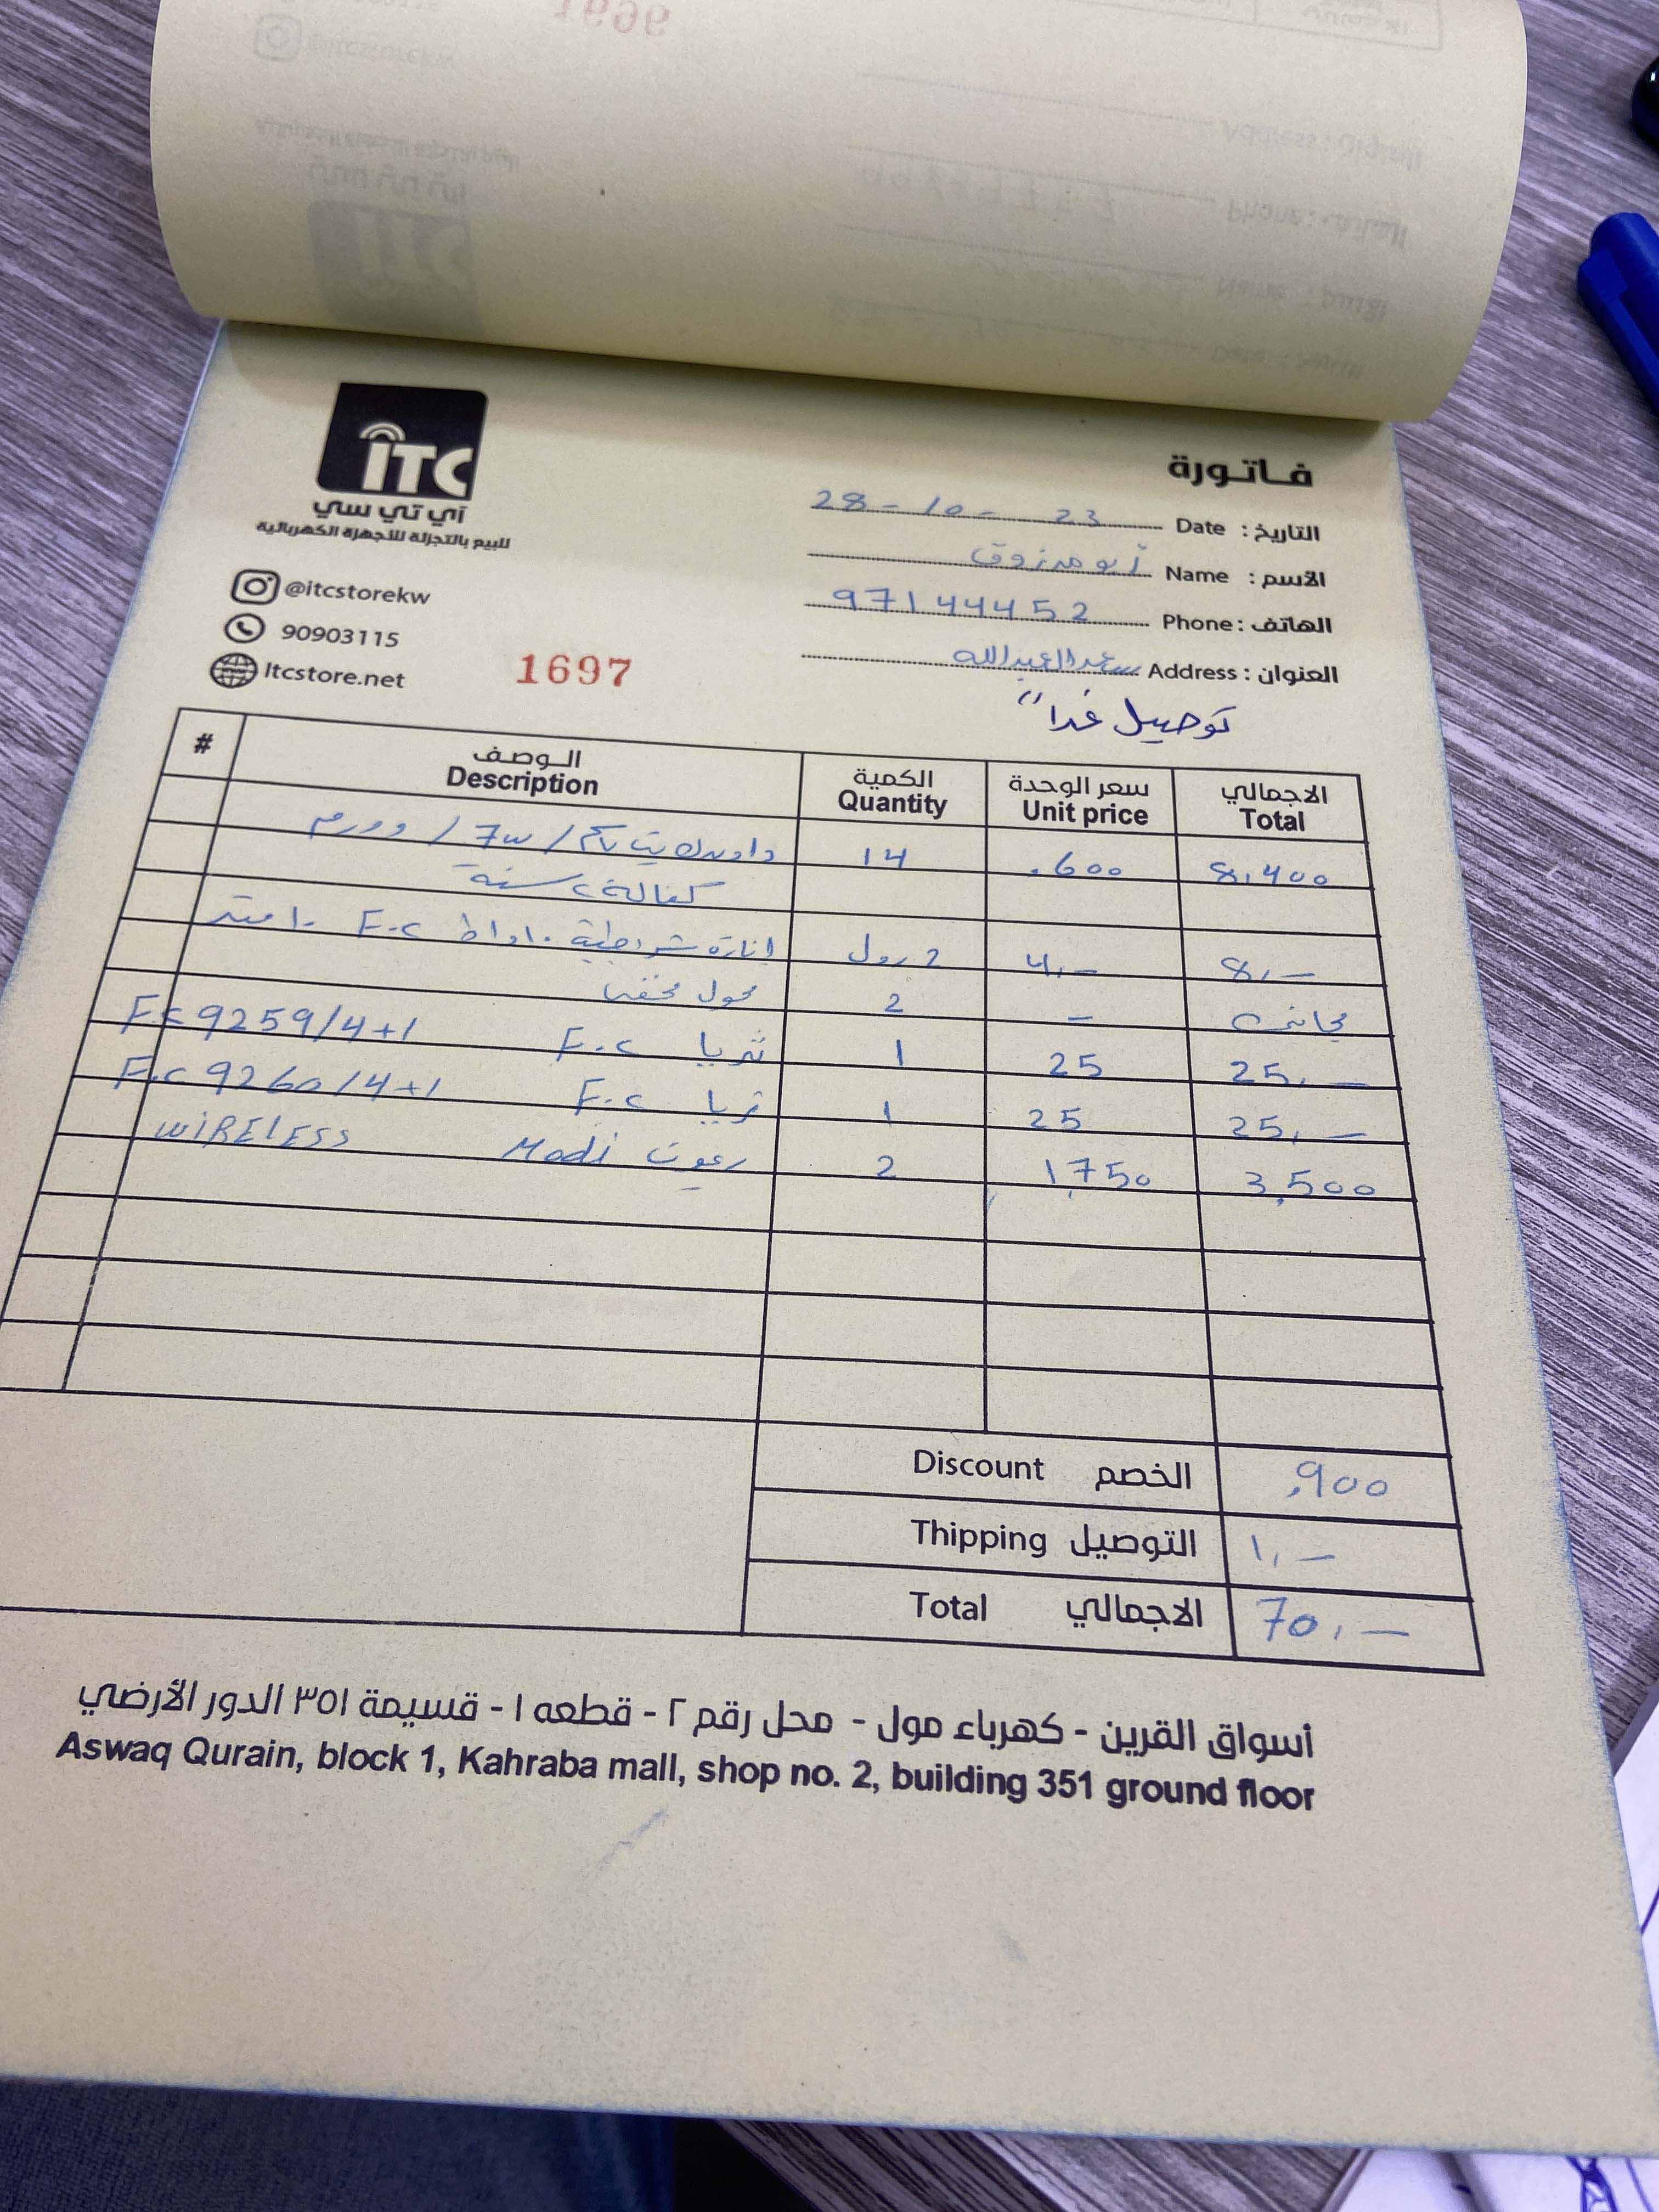 ITC
آي تي سي
للبيع بالتجزئة للأجهزة الكهربائية
@itcstorekw
90903115
Itcstore.net
1697
فاتورة
التاريخ : Date 28-10-23
الأسم : Name أبو مرزوق
الهاتف : Phone 97144452
العنوان : Address سعد العبدالله
توصيل غداً
# الوصف Description الكمية Quantity سعر الوحدة Unit price الاجمالي Total
داونلايت / 7w / وورم 14 .600 8,400
كفالة ٢ سنة
إنارة شريطية ١٠ واط F.C ١٠ متر 2 رول 4,- 8,-
محول مخفي 2 - مجاني
ثريا F.C F.C 9259/4+1 1 25 25,-
ثريا F.C F.C 9260/4+1 1 25 25,-
ريموت Modi WIRELESS 2 1,750 3,500
Discount الخصم ,900
Thipping التوصيل 1,-
Total الاجمالي 70,-
أسواق القرين - كهرباء مول - محل رقم ٢ - قطعه ١ - قسيمة ٣٥١ الدور الأرضي
Aswaq Qurain, block 1, Kahraba mall, shop no. 2, building 351 ground floor